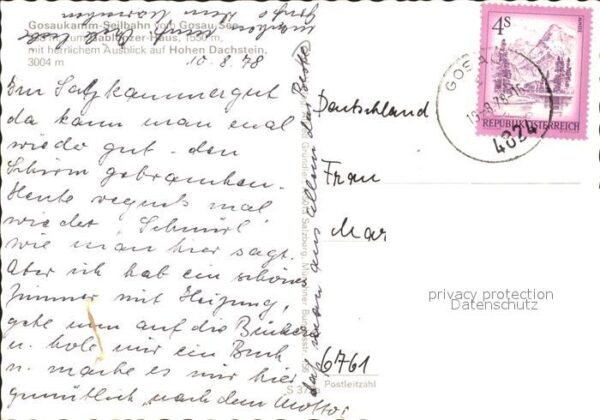 Gosaukamm-Seilbahn vom Gosau See
zum Gablonzer-Haus, 1550 m,
mit herrlichem Ausblick auf Hohen Dachstein,
3004 m
10.8.78
Im Salzkammergut
da kann man mal
wieder gut - den
Schirm gebrauchen.
Heute regnets mal
wieder "Schnürl"
wie man hier sagt.
Aber ich hab ein schönes
Zimmer mit Heizung,
gehe nun auf die Bücherei
u. hole mir ein Buch
u. mache es mir hier
gemütlich nach dem Motto:
daß man aus allem das Beste
Deutschland
Frau
Mar
6761
Postleitzahl
4S
REPUBLIK ÖSTERREICH
GOSAU
4824
Salzburg, Münchner Bundesstr.
S 37
privacy protection
Datenschutz